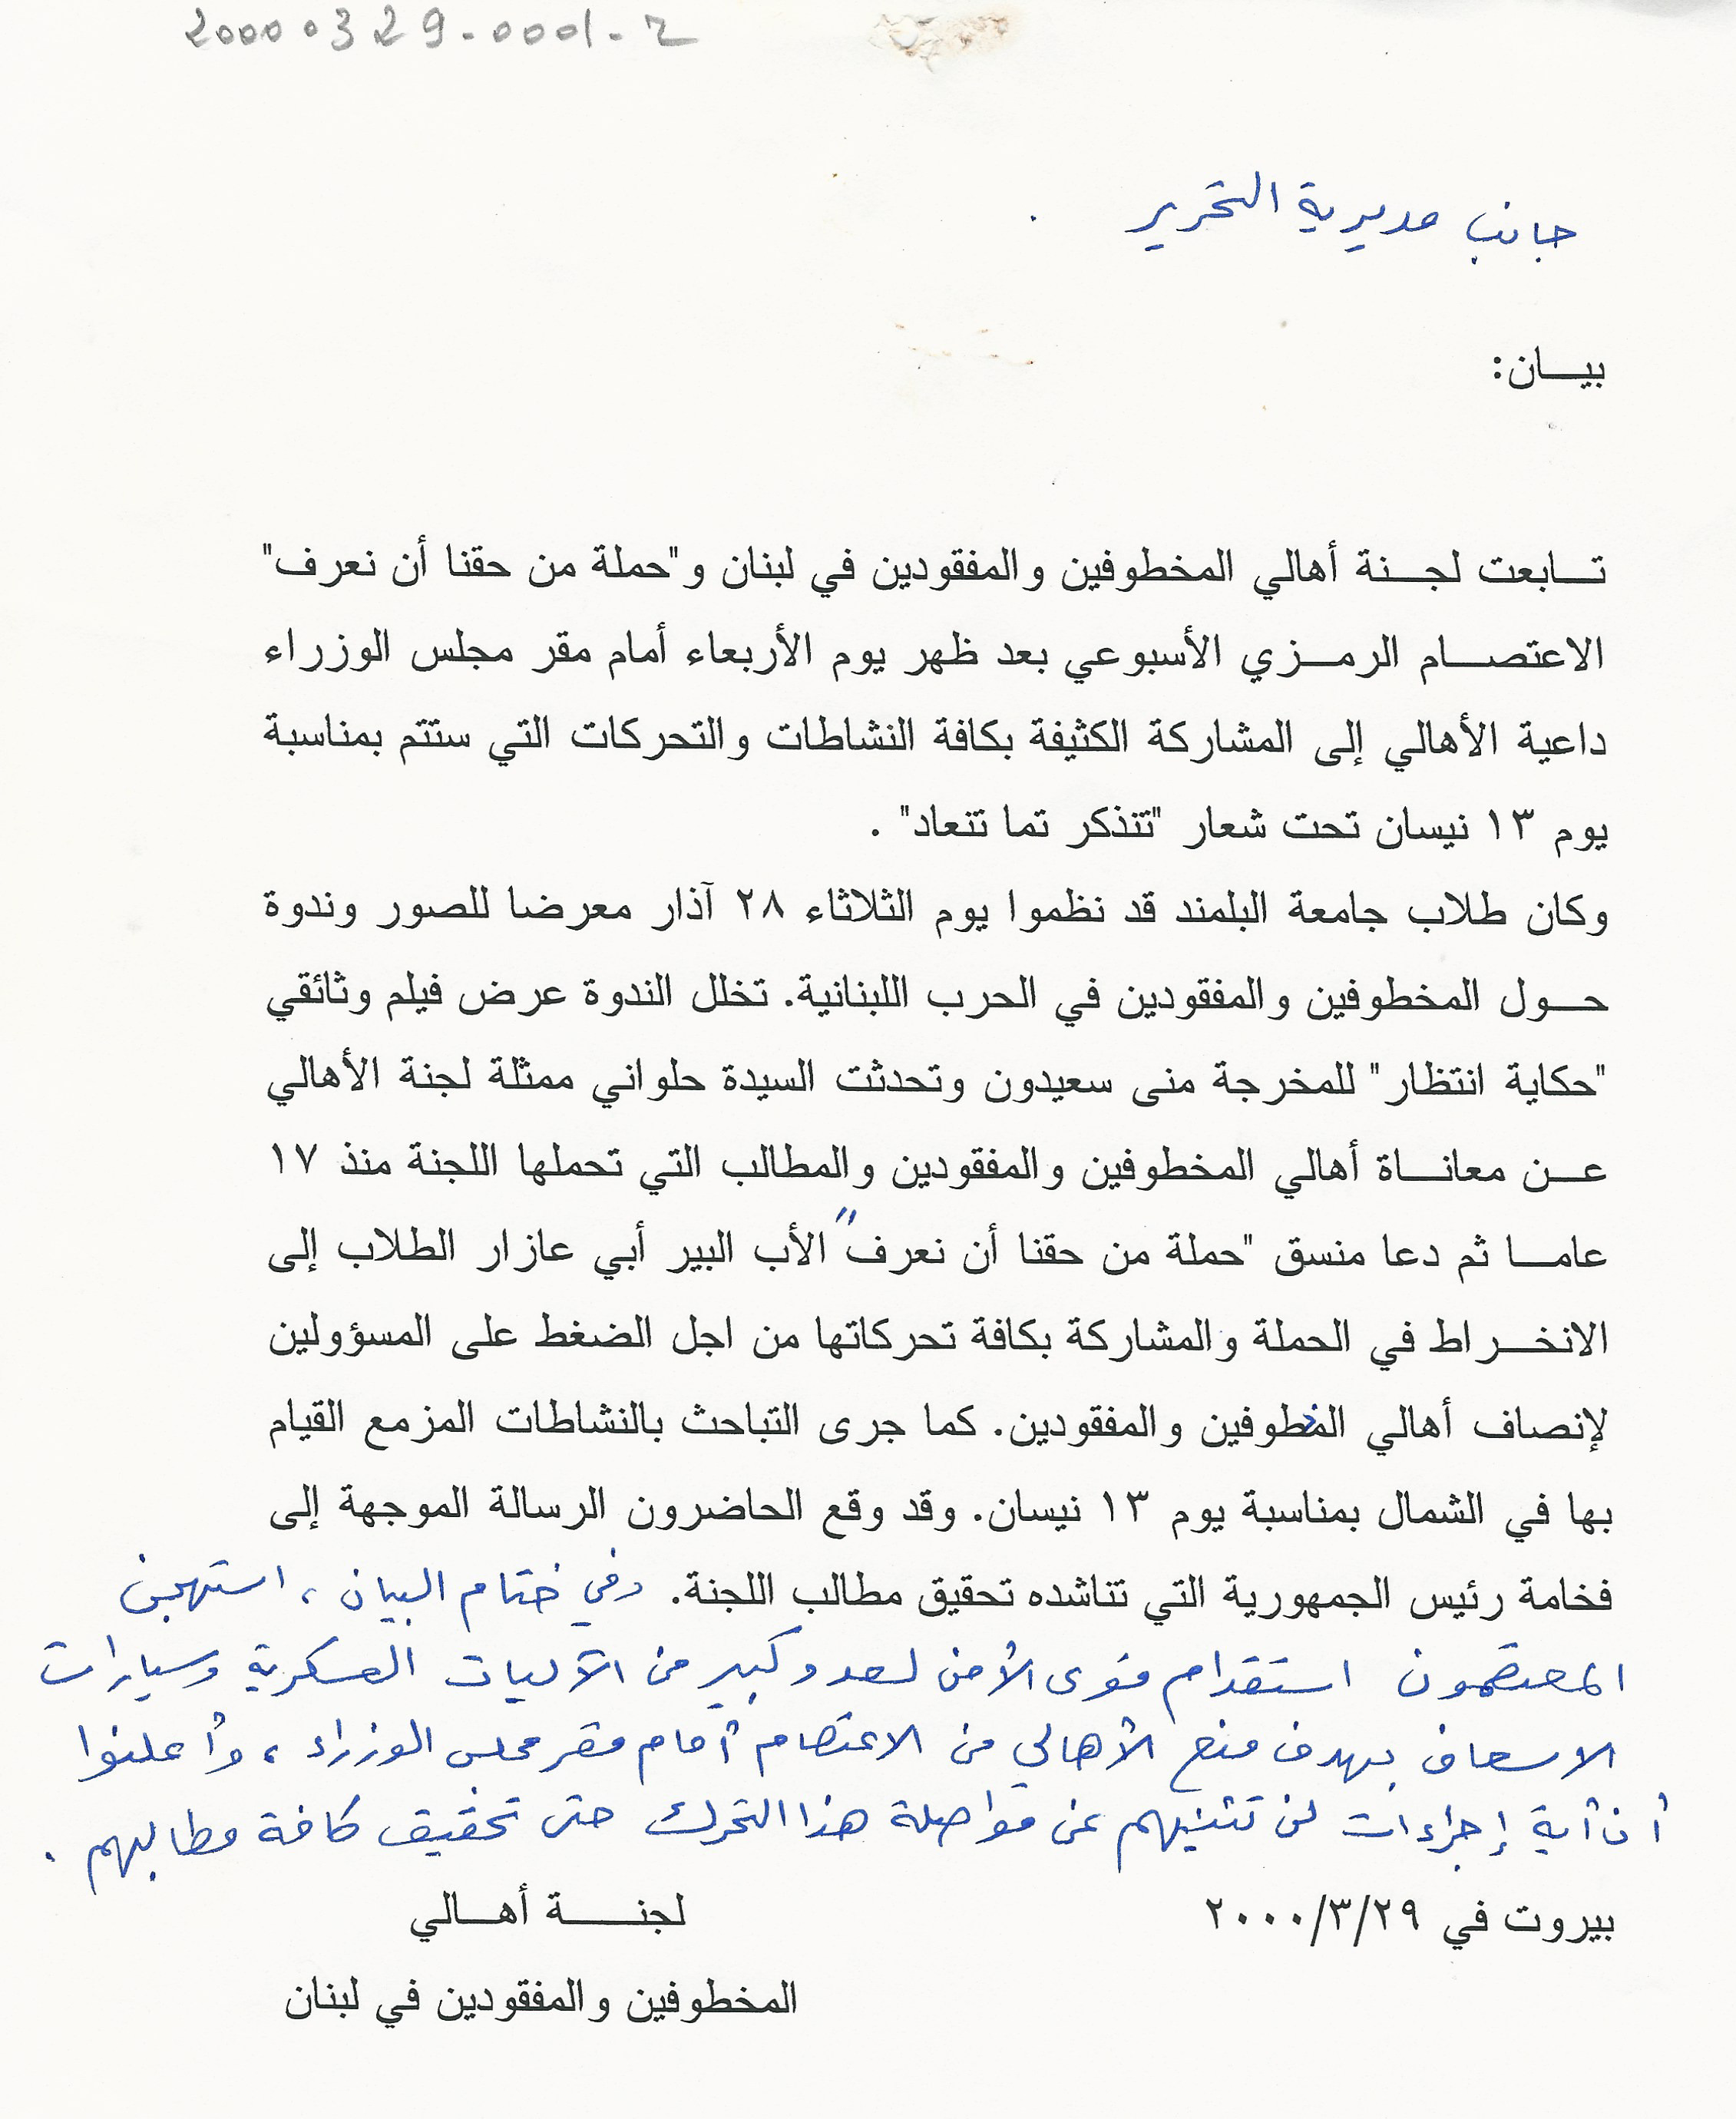 20000329-0001-2
جانب مديرية التحرير .
بيـــان:
تـــابعت لجـــنة أهالي المخطوفين والمفقودين في لبنان و"حملة من حقنا أن نعرف"
الاعتصـــام الرمـــزي الأسبوعي بعد ظهر يوم الأربعاء أمام مقر مجلس الوزراء
داعية الأهالي إلى المشاركة الكثيفة بكافة النشاطات والتحركات التي ستتم بمناسبة
يوم ١٣ نيسان تحت شعار "تتذكر تما تنعاد" .
وكان طلاب جامعة البلمند قد نظموا يوم الثلاثاء ٢٨ آذار معرضا للصور وندوة
حـــول المخطوفين والمفقودين في الحرب اللبنانية. تخلل الندوة عرض فيلم وثائقي
"حكاية انتظار" للمخرجة منى سعيدون وتحدثت السيدة حلواني ممثلة لجنة الأهالي
عـــن معانـــاة أهالي المخطوفين والمفقودين والمطالب التي تحملها اللجنة منذ ١٧
عامـــا ثم دعا منسق "حملة من حقنا أن نعرف" الأب البير أبي عازار الطلاب إلى
الانخـــراط في الحملة والمشاركة بكافة تحركاتها من اجل الضغط على المسؤولين
لإنصاف أهالي المخطوفين والمفقودين. كما جرى التباحث بالنشاطات المزمع القيام
بها في الشمال بمناسبة يوم ١٣ نيسان. وقد وقع الحاضرون الرسالة الموجهة إلى
فخامة رئيس الجمهورية التي تناشده تحقيق مطالب اللجنة. وفي ختام البيان ، استهجن
المعتصمون استقدام قوى الأمن لعدد كبير من الآليات العسكرية وسيارات
الاسعاف بهدف منع الأهالي من الاعتصام أمام مقر مجلس الوزراء ، وأعلنوا
أن أية إجراءات لن تثنيهم عن مواصلة هذا التحرك حتى تحقيق كافة مطالبهم .
بيروت في ٢٠٠٠/٣/٢٩
لجنـــــة أهـــالي
المخطوفين والمفقودين في لبنان